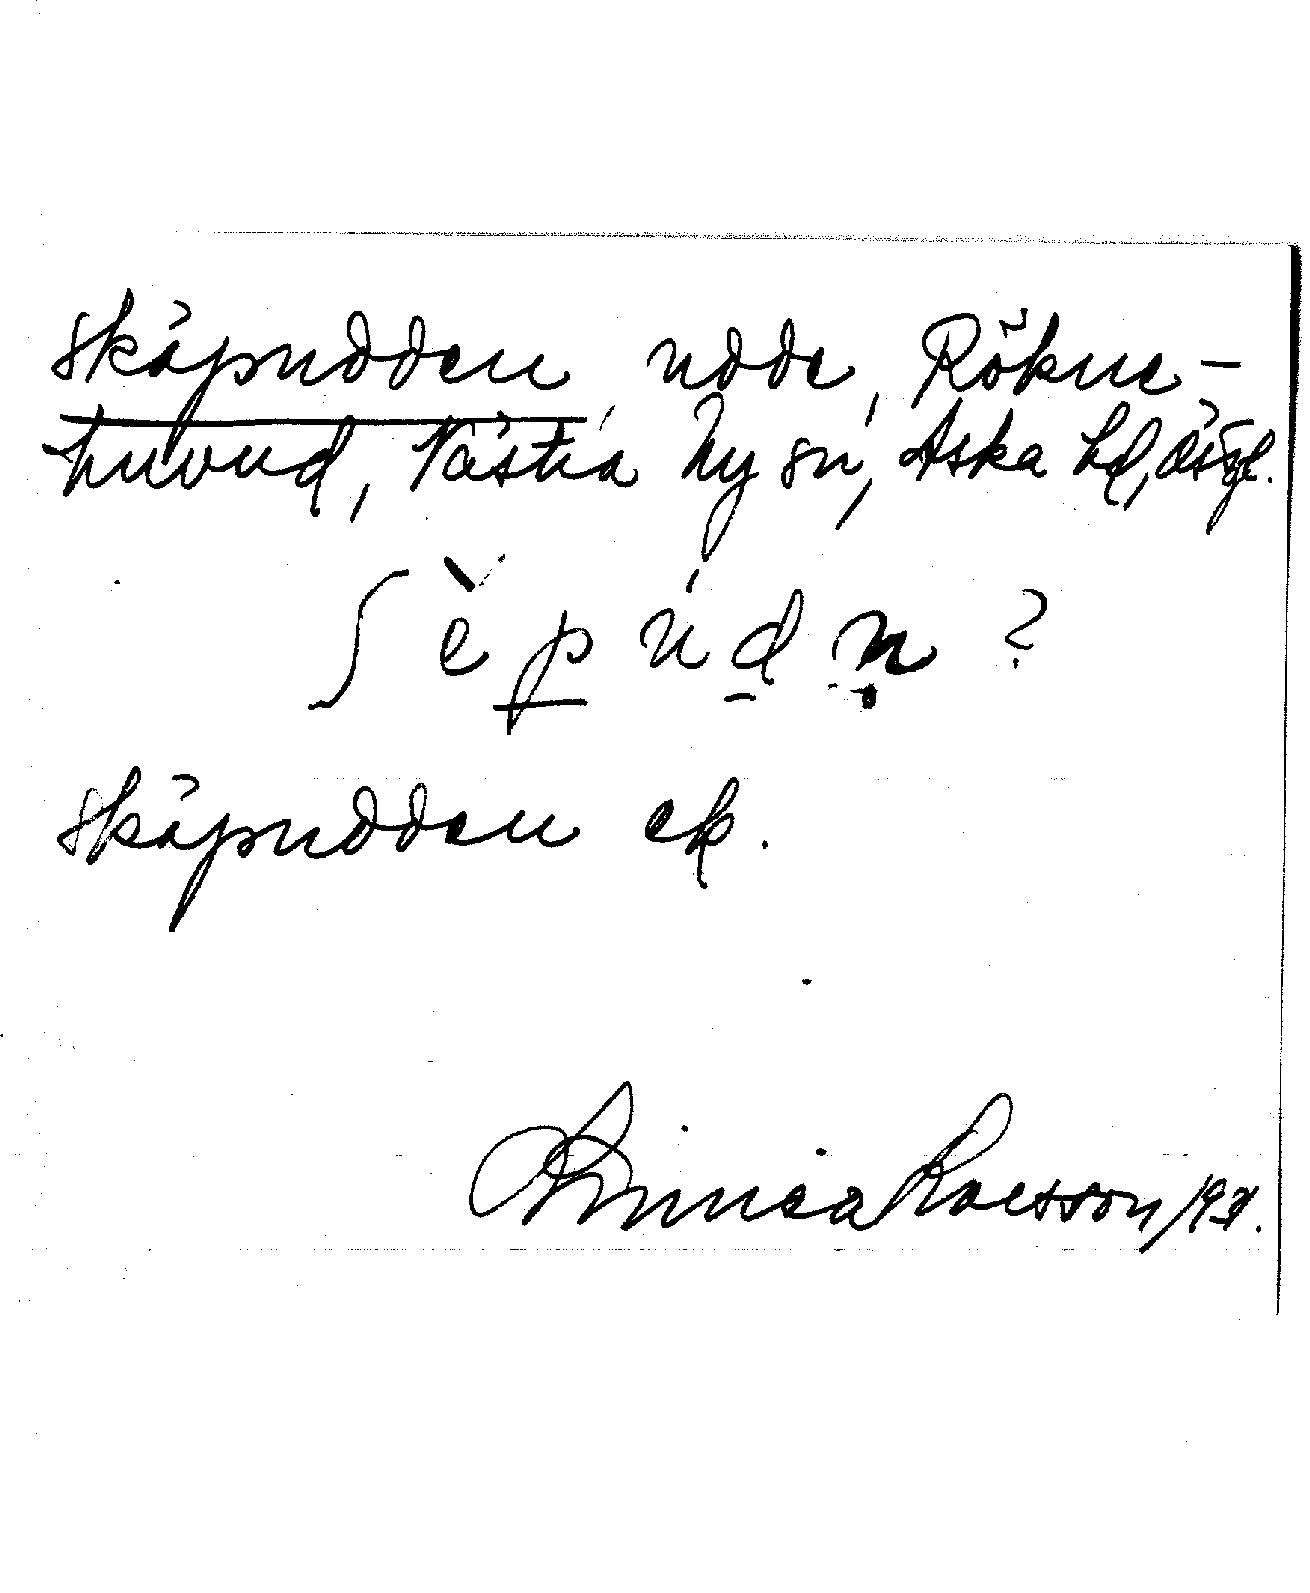 sköpudden, udde, Rökne-
huvud, Västra Ny sn, Aska hd, Östgl.
ʃ ĕ p ú d n ?
sköpudden ek.
Linnea Roesson